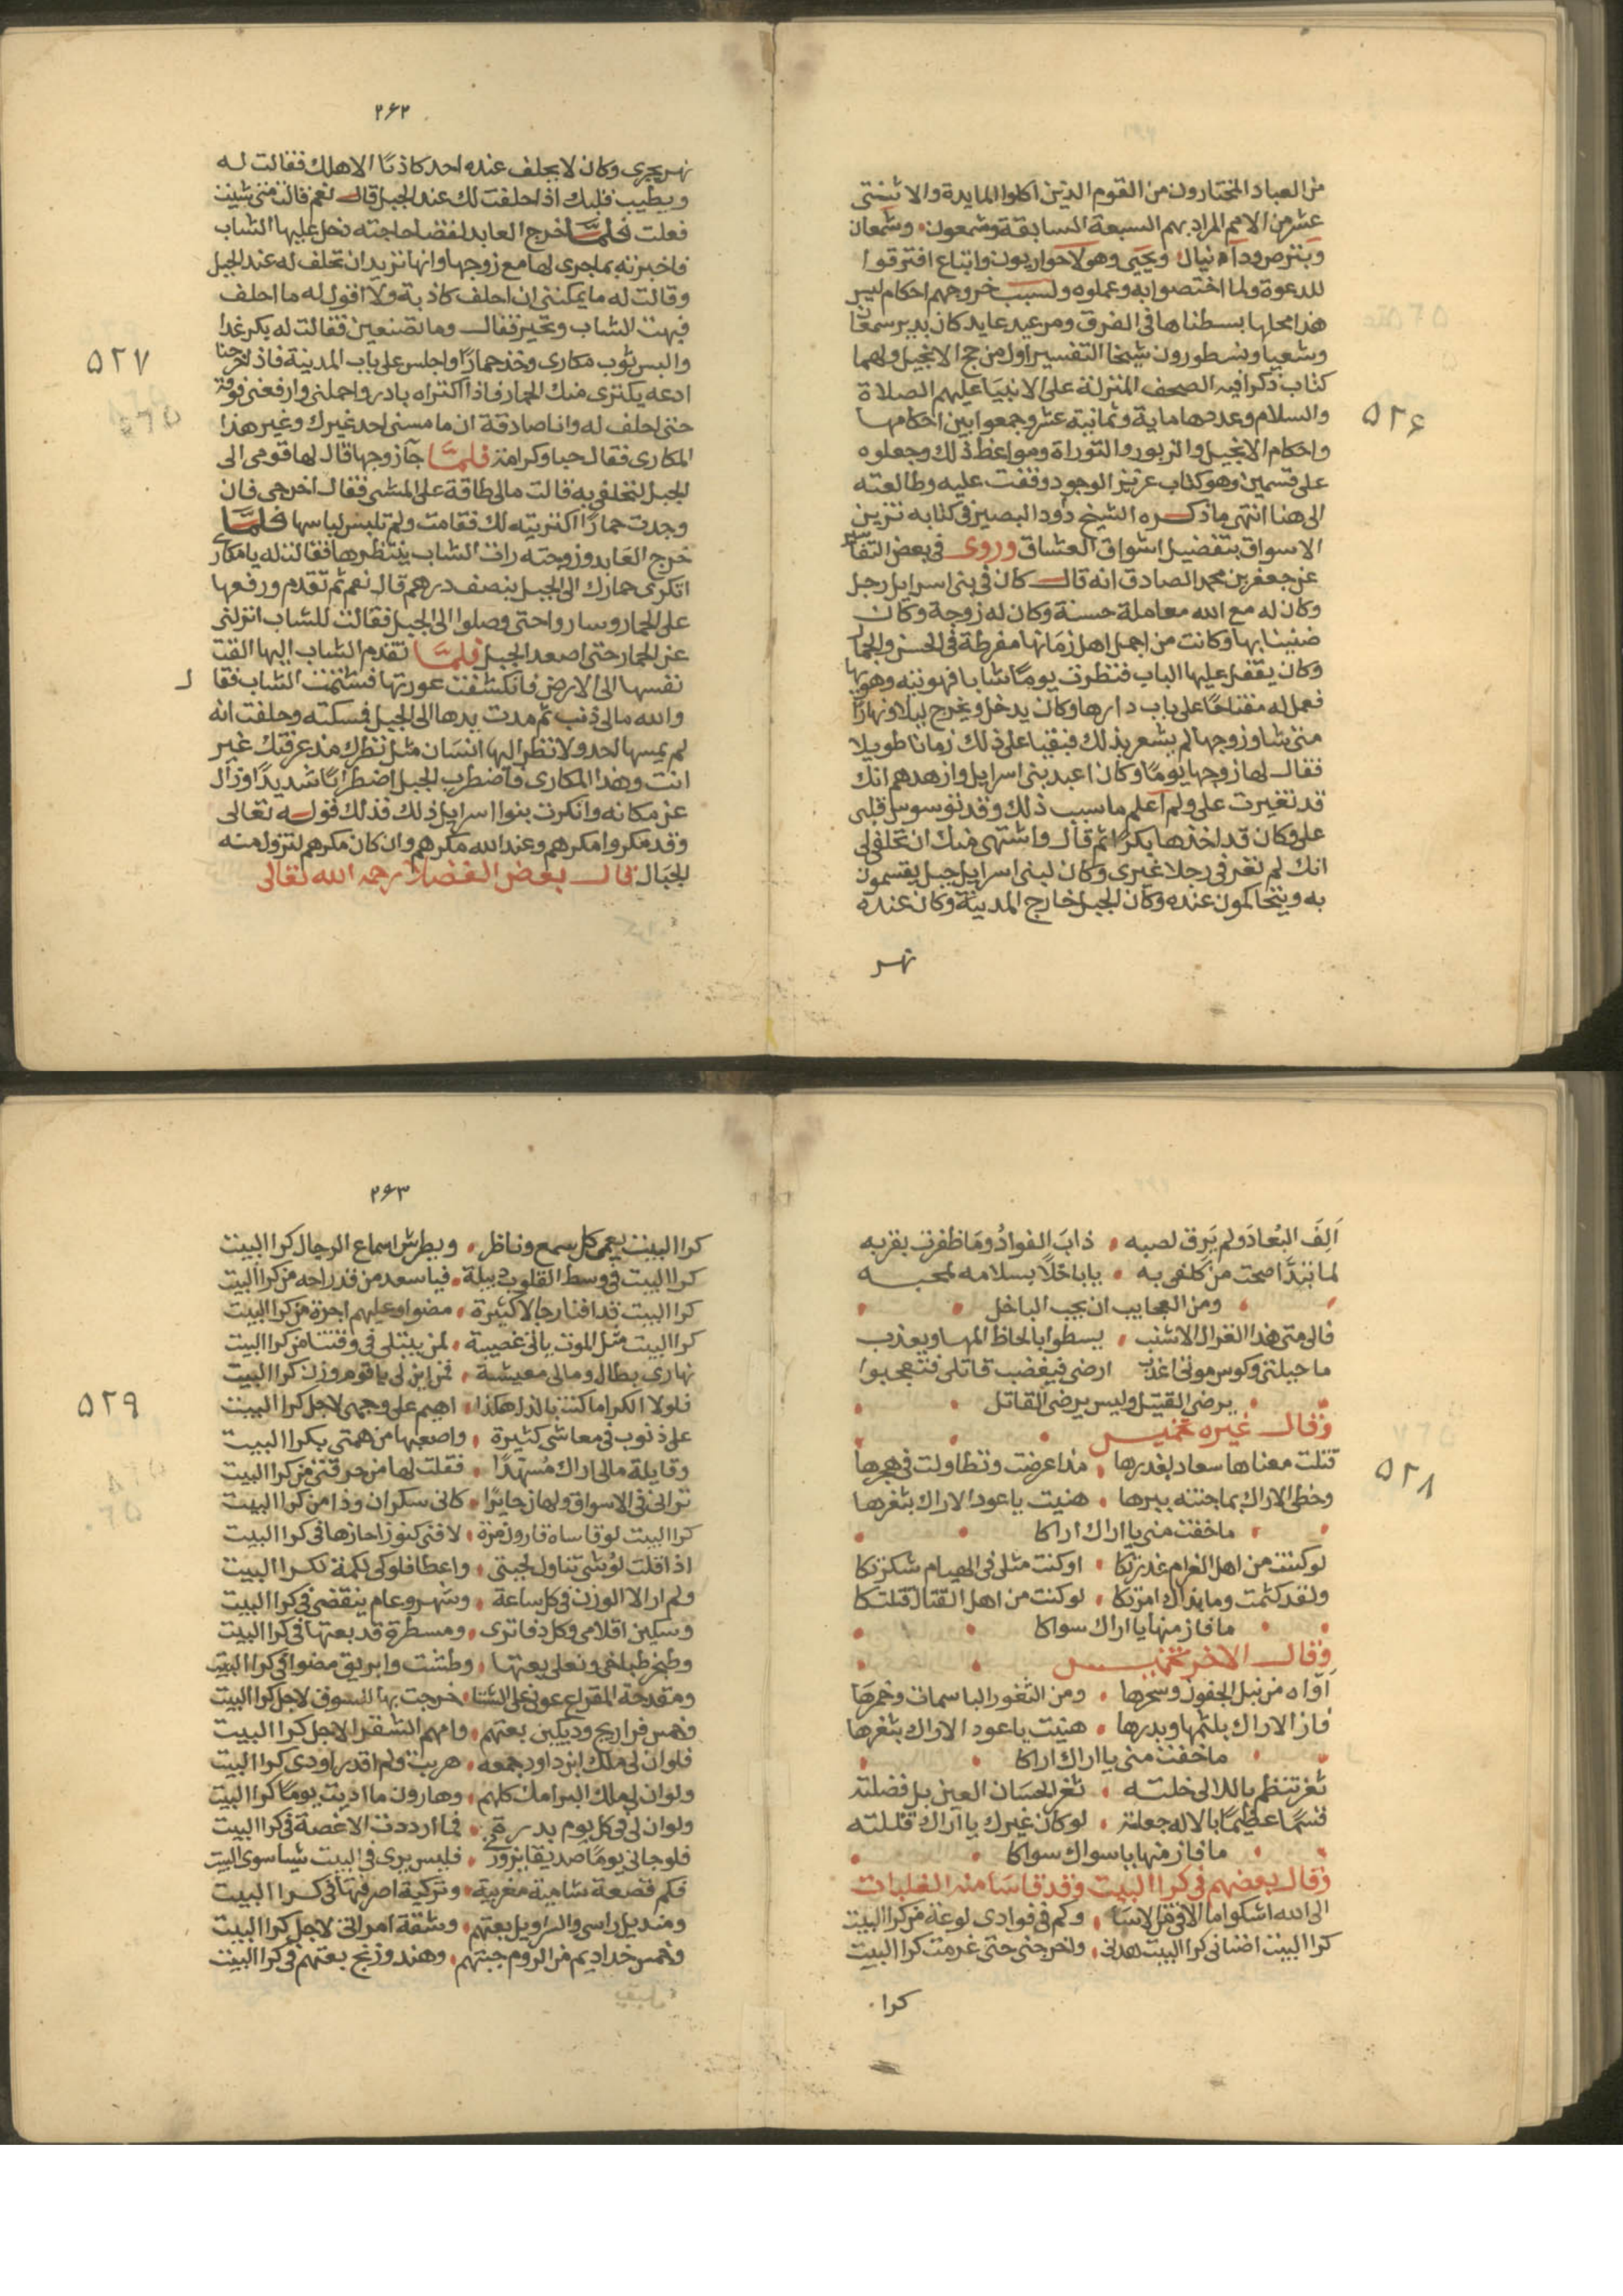 من العباد المختارون من القوم الذين اكلوا المايدة والاثنتى
عشر من الامم المراد بهم السبعة السابقة وشمعون وشمعان
وبترص ودانيال ويحيى وهولا حواريون واتباع افترقوا
للدعوة ولما اختصوا به وعملوه ولسبب خروجهم احكام ليس
هذا محلها بسطناها فى الفرق ومر عبد عابد كان بدير سمعان
وشعيا ونسطورون شيخا التفسير اول من حج الانجيل ولهما
كتاب ذكرا فيه الصحف المنزلة على الانبياء عليهم الصلاة
والسلام وعددها ماية وثمانية عشر وجمعوا بين احكامها
واحكام الانجيل والزبور والتوراة ومواعظ ذلك وجعلوه
على قسمين وهو كتاب عزيز الوجود وقفت عليه وطالعته
الى هنا انتهى ما ذكره الشيخ داود البصير فى كتابه تزيين
الاسواق بتفضيل اشواق العشاق وروى فى بعض التفاسير
عن جعفر بن محمد الصادق انه قال كان فى بنى اسرايل رجل
وكان له مع الله معاملة حسنة وكان له زوجة وكان
ضنينا بها وكانت من اجمل اهل زمانها مفرطة فى الحسن والجمال
وكان يقفل عليها الباب فنظرت يومًا شابا فهويته وهويها
فعمل له مفتاحًا على باب دارها وكان يدخل ويخرج ليلا ونهارًا
متى شا وزوجها لم يشعر بذلك فبقيا على ذلك زمانا طويلا
فقال لها زوجها يومًا وكان اعبد بنى اسرايل وازهدهم انك
قد تغيرت على ولم اعلم ما سبب ذلك وقد توسوس قلبى
على وكان قد اخذها بكرًا ثم قال واشتهى منك ان تحلفى لى
انك لم تعرفى رجلا غيرى وكان لبنى اسرايل جبل يقسمون
به ويتحاكمون عنده وكان الجبل خارج المدينة وكان عنده
نهر
٥٢٦
٢٦٢
نهر يجرى وكان لا يحلف عنده احد كاذبًا الا هلك فقالت له
ويطيب قلبك اذا حلفت لك عند الجبل قال نعم قالت متى شيت
فعلت فلما خرج العابد لقضا حاجته دخل عليها الشاب
فاخبرته بما جرى لها مع زوجها وانها تريد ان تحلف له عند الجبل
وقالت له ما يمكننى ان احلف كاذبة ولا اقول له ما احلف
فبهت الشاب وتحير فقال وما تصنعين فقالت له بكر غدا
والبس ثوب مكارى وخذ حمارًا واجلس على باب المدينة فاذا خرجنا
ادعه يكترى منك الحمار فاذا اكتراه بادر واحملنى وارفعنى فوقه
حتى احلف له وانا صادقة ان ما مسنى احد غيرك وغير هذا
المكارى فقال حبا وكرامة فلما جآ زوجها قال لها قومى الى
الجبل لتحلفى به قالت مالى طاقة على المشى فقال اخرجى فان
وجدت حمارًا اكتريته لك فقامت ولم تلبس لباسها فلما
خرج العابد وزوجته رات الشاب ينتظرها فقالت له يا مكارى
اتكرى حمارك الى الجبل بنصف درهم قال نعم ثم تقدم ورفعها
على الحمار وساروا حتى وصلوا الى الجبل فقالت للشاب انزلنى
عن الحمار حتى اصعد الجبل فلما تقدم الشاب اليها القت
نفسها الى الارض فانكشفت عورتها فشتمت الشاب فقال
والله مالى ذنب ثم مدت يدها الى الجبل فسكته وحلفت انه
لم يمسها احد ولا نظر اليها انسان مثل نظرك منذ عرفتك غير
انت وهذا المكارى فاضطرب الجبل اضطرابًا شديدًا وزال
عن مكانه وانكرت بنوا اسرايل ذلك فذلك قوله تعالى
وقد مكروا مكرهم وعند الله مكرهم وان كان مكرهم لتزول منه
الجبال قال بعض الفضلا رحمه الله تعالى
٥٢٧
اَلِفَ البُعادَ ولم يَرِق لصبه ذابَ الفوادُ ومَا ظفرت بقربه
لما تبدَّا صحت من كلفى به يا باخلًا بسلامه لمحبه
ومن العجايب ان يحب الباخل
فالى متى هذا الغزال الاشنب يسطوا بالحاظ المها ويعذب
ما حيلتى وكوس موتى اعذب ارضى فيغضب قاتلى فتعجبوا
يرضى القتيل وليس يرضى القاتل
وقال غيره تخميس
قتلت معناها سعاد بغدرها مذ اعرضت وتطاولت فى هجرها
وحظى الاراك بما جنته ببرها هنيت يا عود الاراك بثغرها
ما خفت منى يا اراك اراكا
لو كنت من اهل الغرام عذرتكا او كنت مثلى فى الهيام شكرتكا
ولقد كتمت وما بذاك امرتكا لو كنت من اهل القتال قتلتكا
ما فاز منها يا اراك سواكا
وقال الاخر تخميس
اَوّاه من نبل الجفون وسحرها ومن الثغور الباسمات وخمرها
فاز الاراك بلثمها وبدرها هنيت يا عود الاراك بثغرها
ما خفت منى يا اراك اراكا
ثغر تنظم باللالى خلته ثغر الحسان العين بل فضلته
قسمًا عظيمًا بالاله جعلته لو كان غيرك يا اراك قتلته
ما فاز منها يا سواك سواكا
وقال بعضهم فى كرا البيت وقد قاسَا منه الغلبات
الى الله اشكوا ما الاقى من الاسَا وكم فى فوادى لوعة من كرا البيت
كرا البيت اضنانى كرا البيت هدنى واخرجنى حتى غرمت كرا البيت
كرا
٥٢٨
٢٦٣
كرا البيت يعمى كل سمع وناظر ويطرش اسماع الرجال كرا البيت
كرا البيت فى وسط القلوب دبيلة فيا سعد من قد راحه من كرا البيت
كرا البيت قد افنا رجالا كثيرة مضوا وعليهم اجرة من كرا البيت
كرا البيت مثل الموت ياتى غصيبة لمن يبتلى فى وقتنا من كرا البيت
نهارى بطال ومالى معيشة فمن اين لى يا قوم وزن كرا البيت
فلولا الكرا ما كنت بالذل هكذا اهيم على وجهى لاجل كرا البيت
على ذنوب فى معاشى كثيرة واصعبها من همتى بكرا البيت
وقايلة مالى اراك مُسهدًا فقلت لها من حرقتى من كرا البيت
ترانى فى الاسواق ولهان حايرًا كانى سكران وذا من كرا البيت
كرا البيت لو قاساه قارون مرة لافنى كنوزا حازها فى كرا البيت
ولم ار الا الوزن فى كل ساعة وشهر وعام ينقضى فى كرا البيت
وسكين اقلامى وكل دفاترى ومسطرة قد بعتها فى كرا البيت
وطنجر طباخى ونعلى بعتها وطشت وابريق مضوا فى كرا البيت
وخمس فراريج وديكين بعتهم وامهم الشقرا لاجل كرا البيت
فلو ان لى ملك ابن داود جمعه هربت ولم اقدر اودى كرا البيت
ولو ان لى ملك البرامك كلهم وهارون ما اديت يومًا كرا البيت
ولو ان لى فى كل يوم بدرة فما ازددت الا غصة فى كرا البيت
فلو جانى يومًا صديقا يزورنى فليس يرى فى البيت شيا سوى البيت
فكم قصعة شامية مغربية وتركية اصرفتها فى كرا البيت
ومنديل راسى والسراويل بعتهم وشقة امراتى لاجل كرا البيت
وخمس خداديم من الروم جبتهم وهند وزنج بعتهم فى كرا البيت
٥٢٩